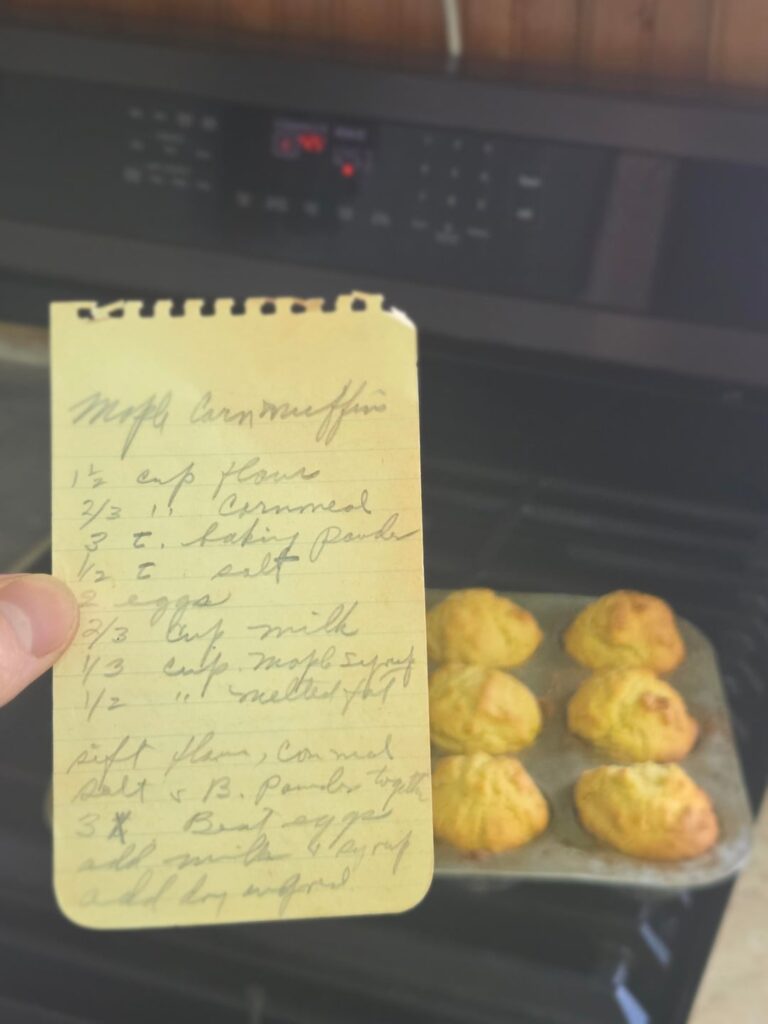 Maple Corn muffins
1 1/2 cup flour
2/3 " Cornmeal
3 t. baking powder
1/2 t. salt
2 eggs
2/3 cup milk
1/3 cup. maple syrup
1/2 " melted fat
sift flour, corn meal
salt & B. Powder together
3 X Beat eggs
add milk & syrup
add dry ingred.